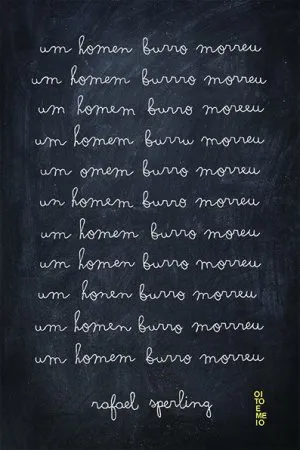 um homen burro morreu
um homem burrro morreu
um homem burro moreeu
um homem burru morreu
um omem burro morreu
un homem burro morreu
um homem burro morreu
um homem burro morreu
um honen burro morreu
um homen burro morrreu
um homem burro morreu
rafael sperling
OI
TO
E ME
IO